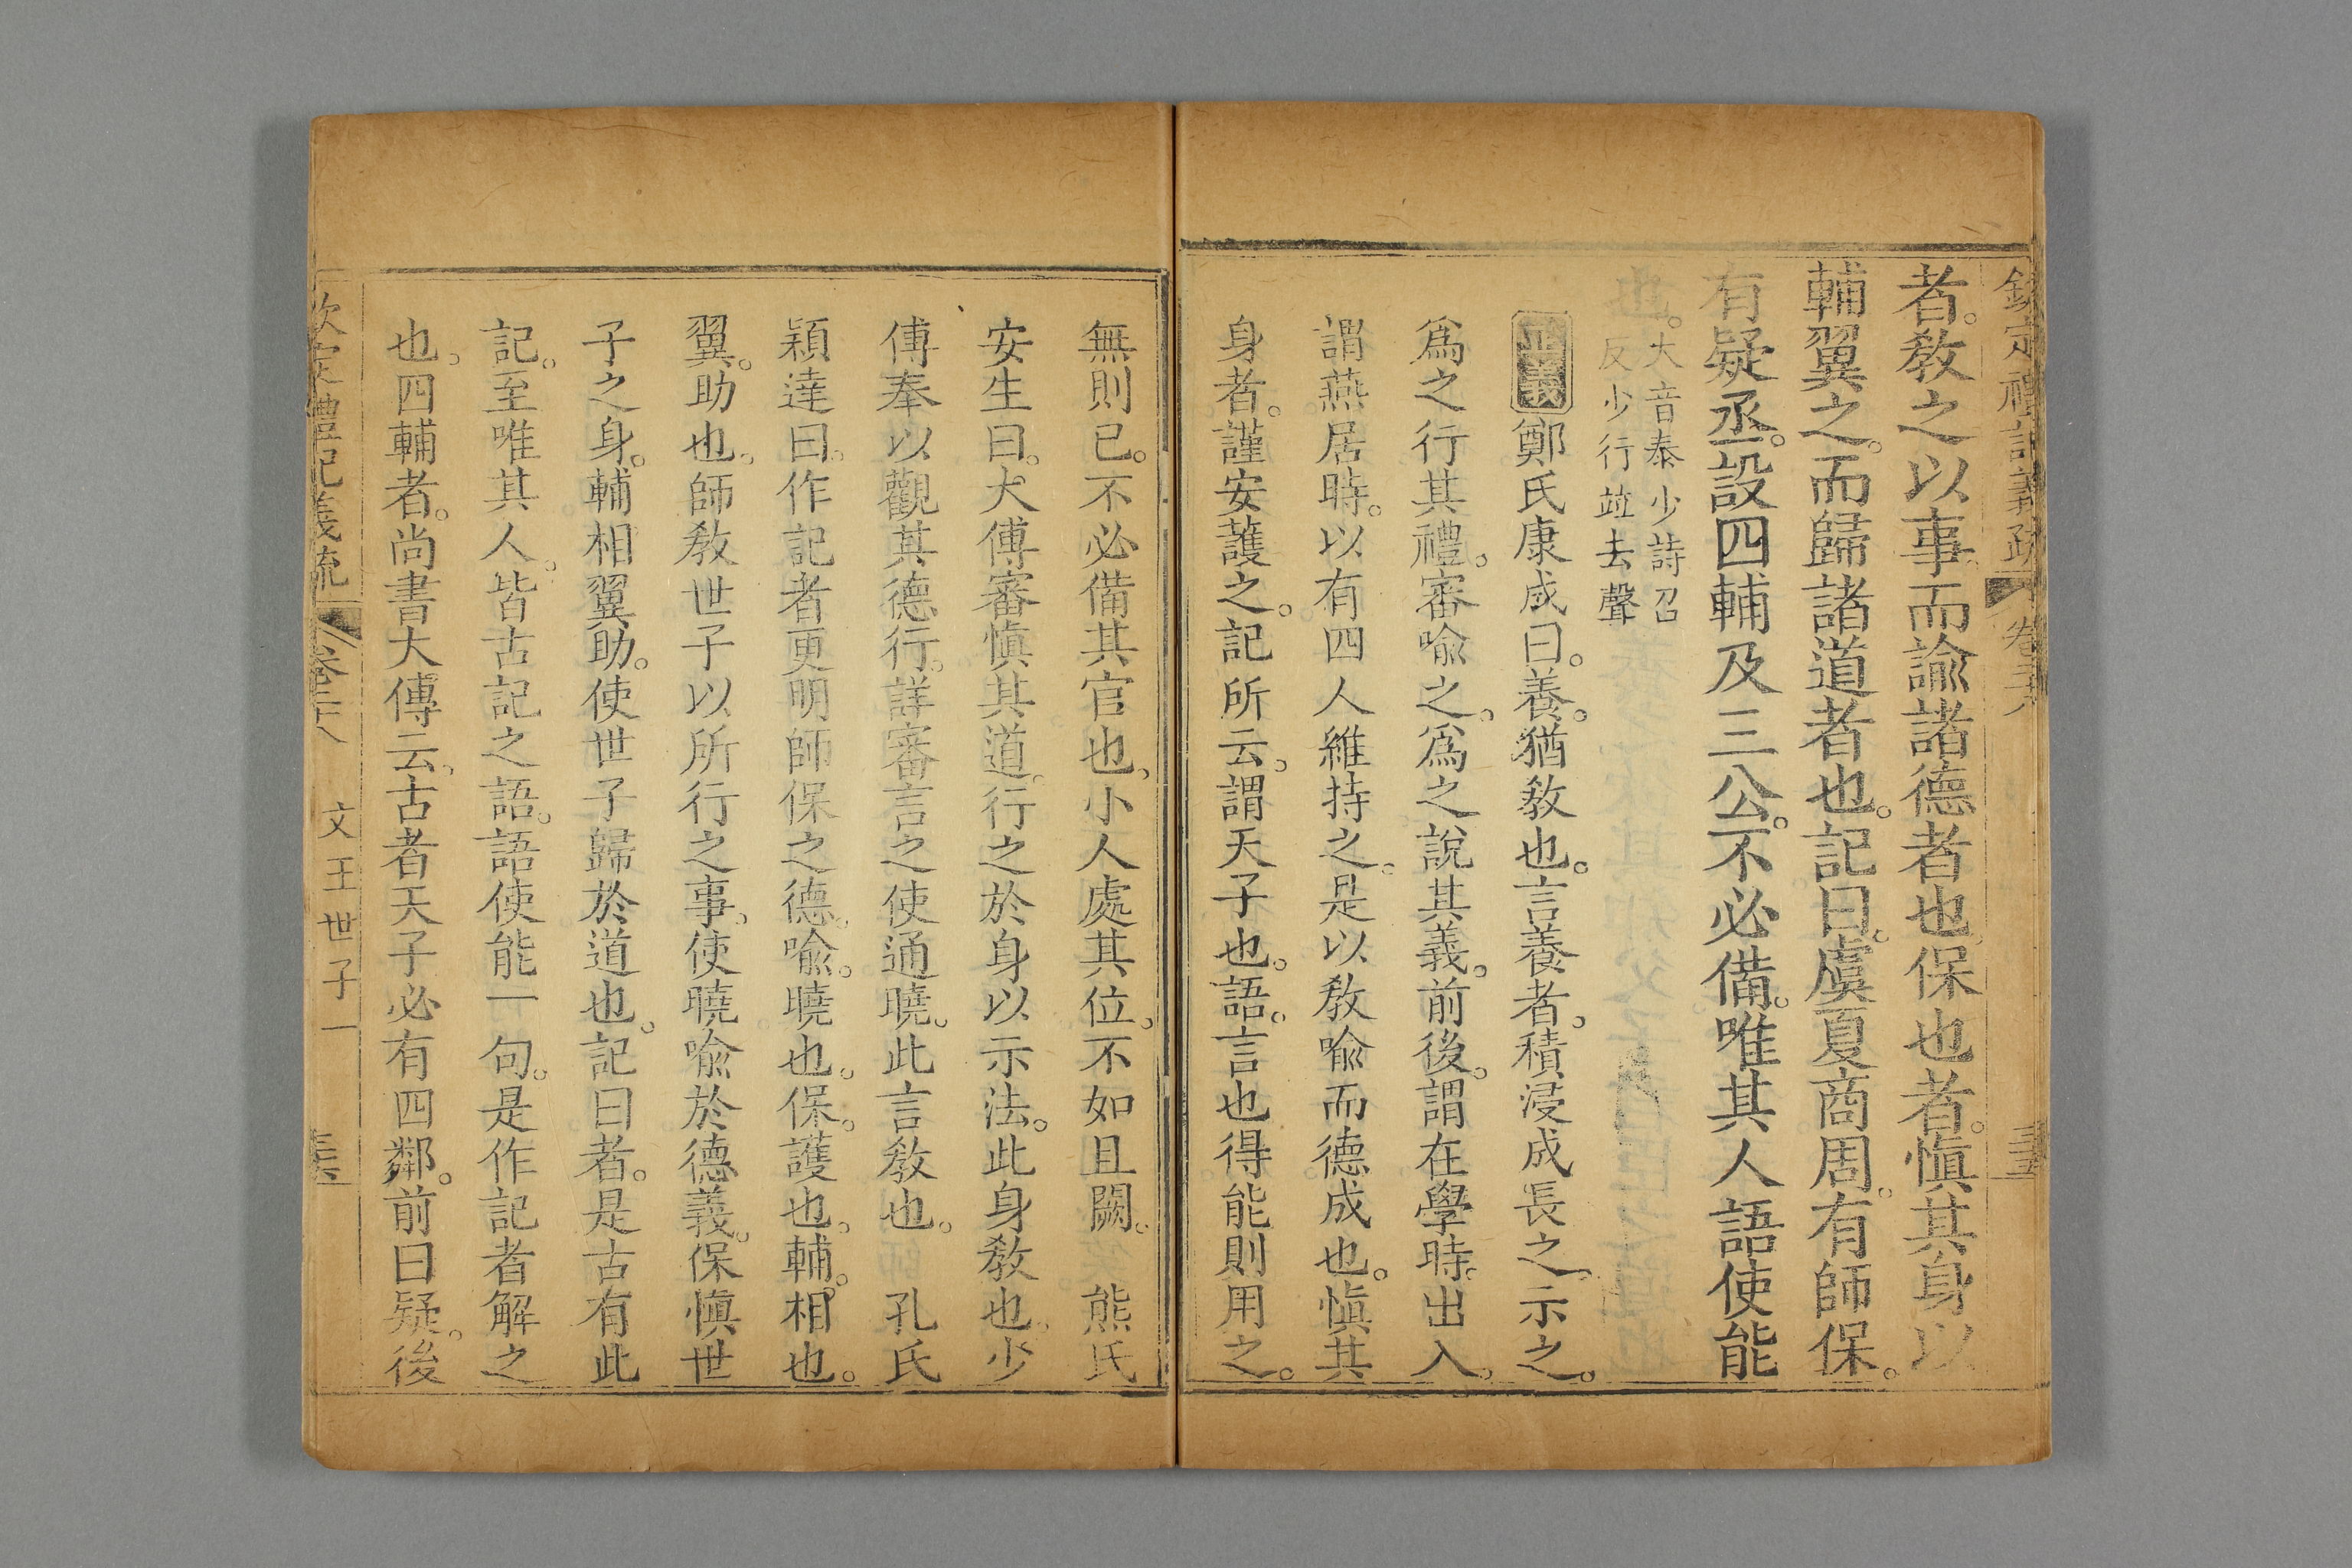 欽定禮記義疏 卷二十八
者。教之以事。而諭諸德者也。保也者。慎其身以
輔翼之。而歸諸道者也。記曰。虞夏商周。有師保。
有疑丞。設四輔及三公。不必備。唯其人語使能
也。大音泰少詩召
反少行竝去聲
正義鄭氏康成曰。養。猶教也。言養者。積浸成長之。示之。
爲之行其禮。審喻之。爲之說其義。前後。謂在學時。出入。
謂燕居時。以有四人維持之。是以教喻而德成也。慎其
身者。謹安護之。記所云。謂天子也。語。言也得能則用之。
無則已。不必備其官也。小人處其位。不如且闕。 熊氏
安生曰。大傅審慎其道。行之於身以示法。此身教也。少
傅奉以觀其德行。詳審言之使通曉。此言教也。 孔氏
穎達曰。作記者更明師保之德。喻。曉也。保。護也。輔。相也。
翼。助也。師教世子以所行之事。使曉喻於德義。保慎世
子之身。輔相翼助。使世子歸於道也。記曰者。是古有此
記。至唯其人。皆古記之語。語使能一句。是作記者解之
也。四輔者。尚書大傅云。古者天子必有四鄰。前曰疑。後
欽定禮記義疏 卷二十八 文王世子一